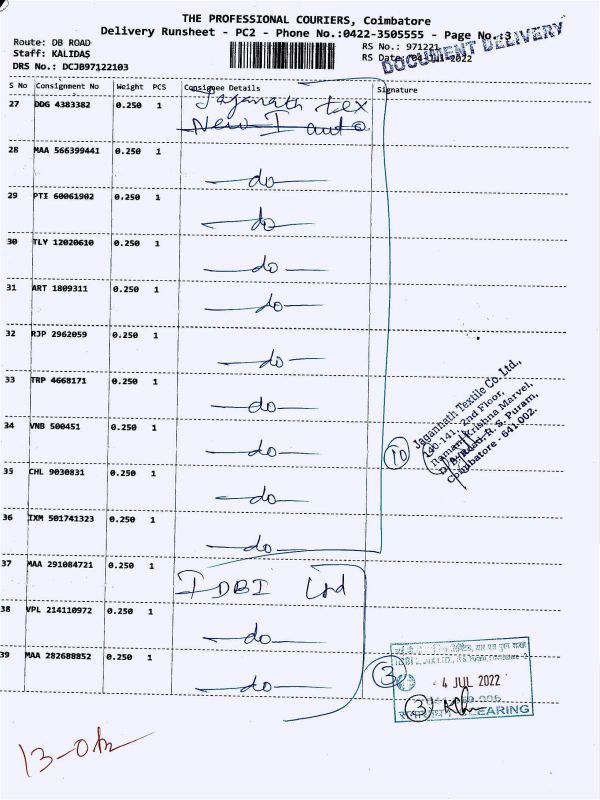 THE PROFESSIONAL COURIERS, Coimbatore
Delivery Runsheet - PC2 - Phone No.:0422-3505555 - Page No.:3
Route: DB ROAD
Staff: KALIDAS
DRS No.: DCJB97122103
RS No.: 971221
RS Date:
DOCUMENT DELIVERY
S No Consignment No Weight PCS Consignee Details Signature
27 DDG 4383382 0.250 1 Jaganath tex
New I auto
28 MAA 566399441 0.250 1 —do—
29 PTI 60061902 0.250 1 —do—
30 TLY 12020610 0.250 1 —do—
31 ART 1809311 0.250 1 —do—
32 RJP 2962059 0.250 1 —do—
33 TRP 4668171 0.250 1 —do—
34 VNB 500451 0.250 1 —do—
35 CHL 9030831 0.250 1 —do—
36 IXM 501741323 0.250 1 —do—
10
Jagannath Textile Co. Ltd.,
140-141, 2nd Floor,
Raman Krishna Marvel,
D.B. Road, R. S. Puram,
Coimbatore - 641 002.
37 MAA 291084721 0.250 1 IDBI Ltd
38 VPL 214110972 0.250 1 —do—
39 MAA 282688852 0.250 1 —do—
3
4 JUL 2022
3
CLEARING
13-